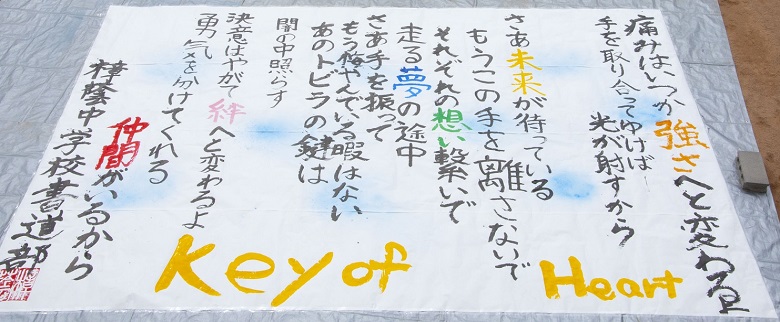 痛みはいつか強さへと変わるよ
手を取り合ってゆけば
光が射すから
さあ未来が待っている
もうこの手を離さないで
それぞれの想い繋いで
走る夢の途中
さあ手を振って
もう悔やんでいる暇はない
あのトビラの鍵は
闇の中照らす
決意はやがて絆へと変わるよ
勇気を分けてくれる
仲間がいるから
樟蔭中学校書道部
Key of Heart